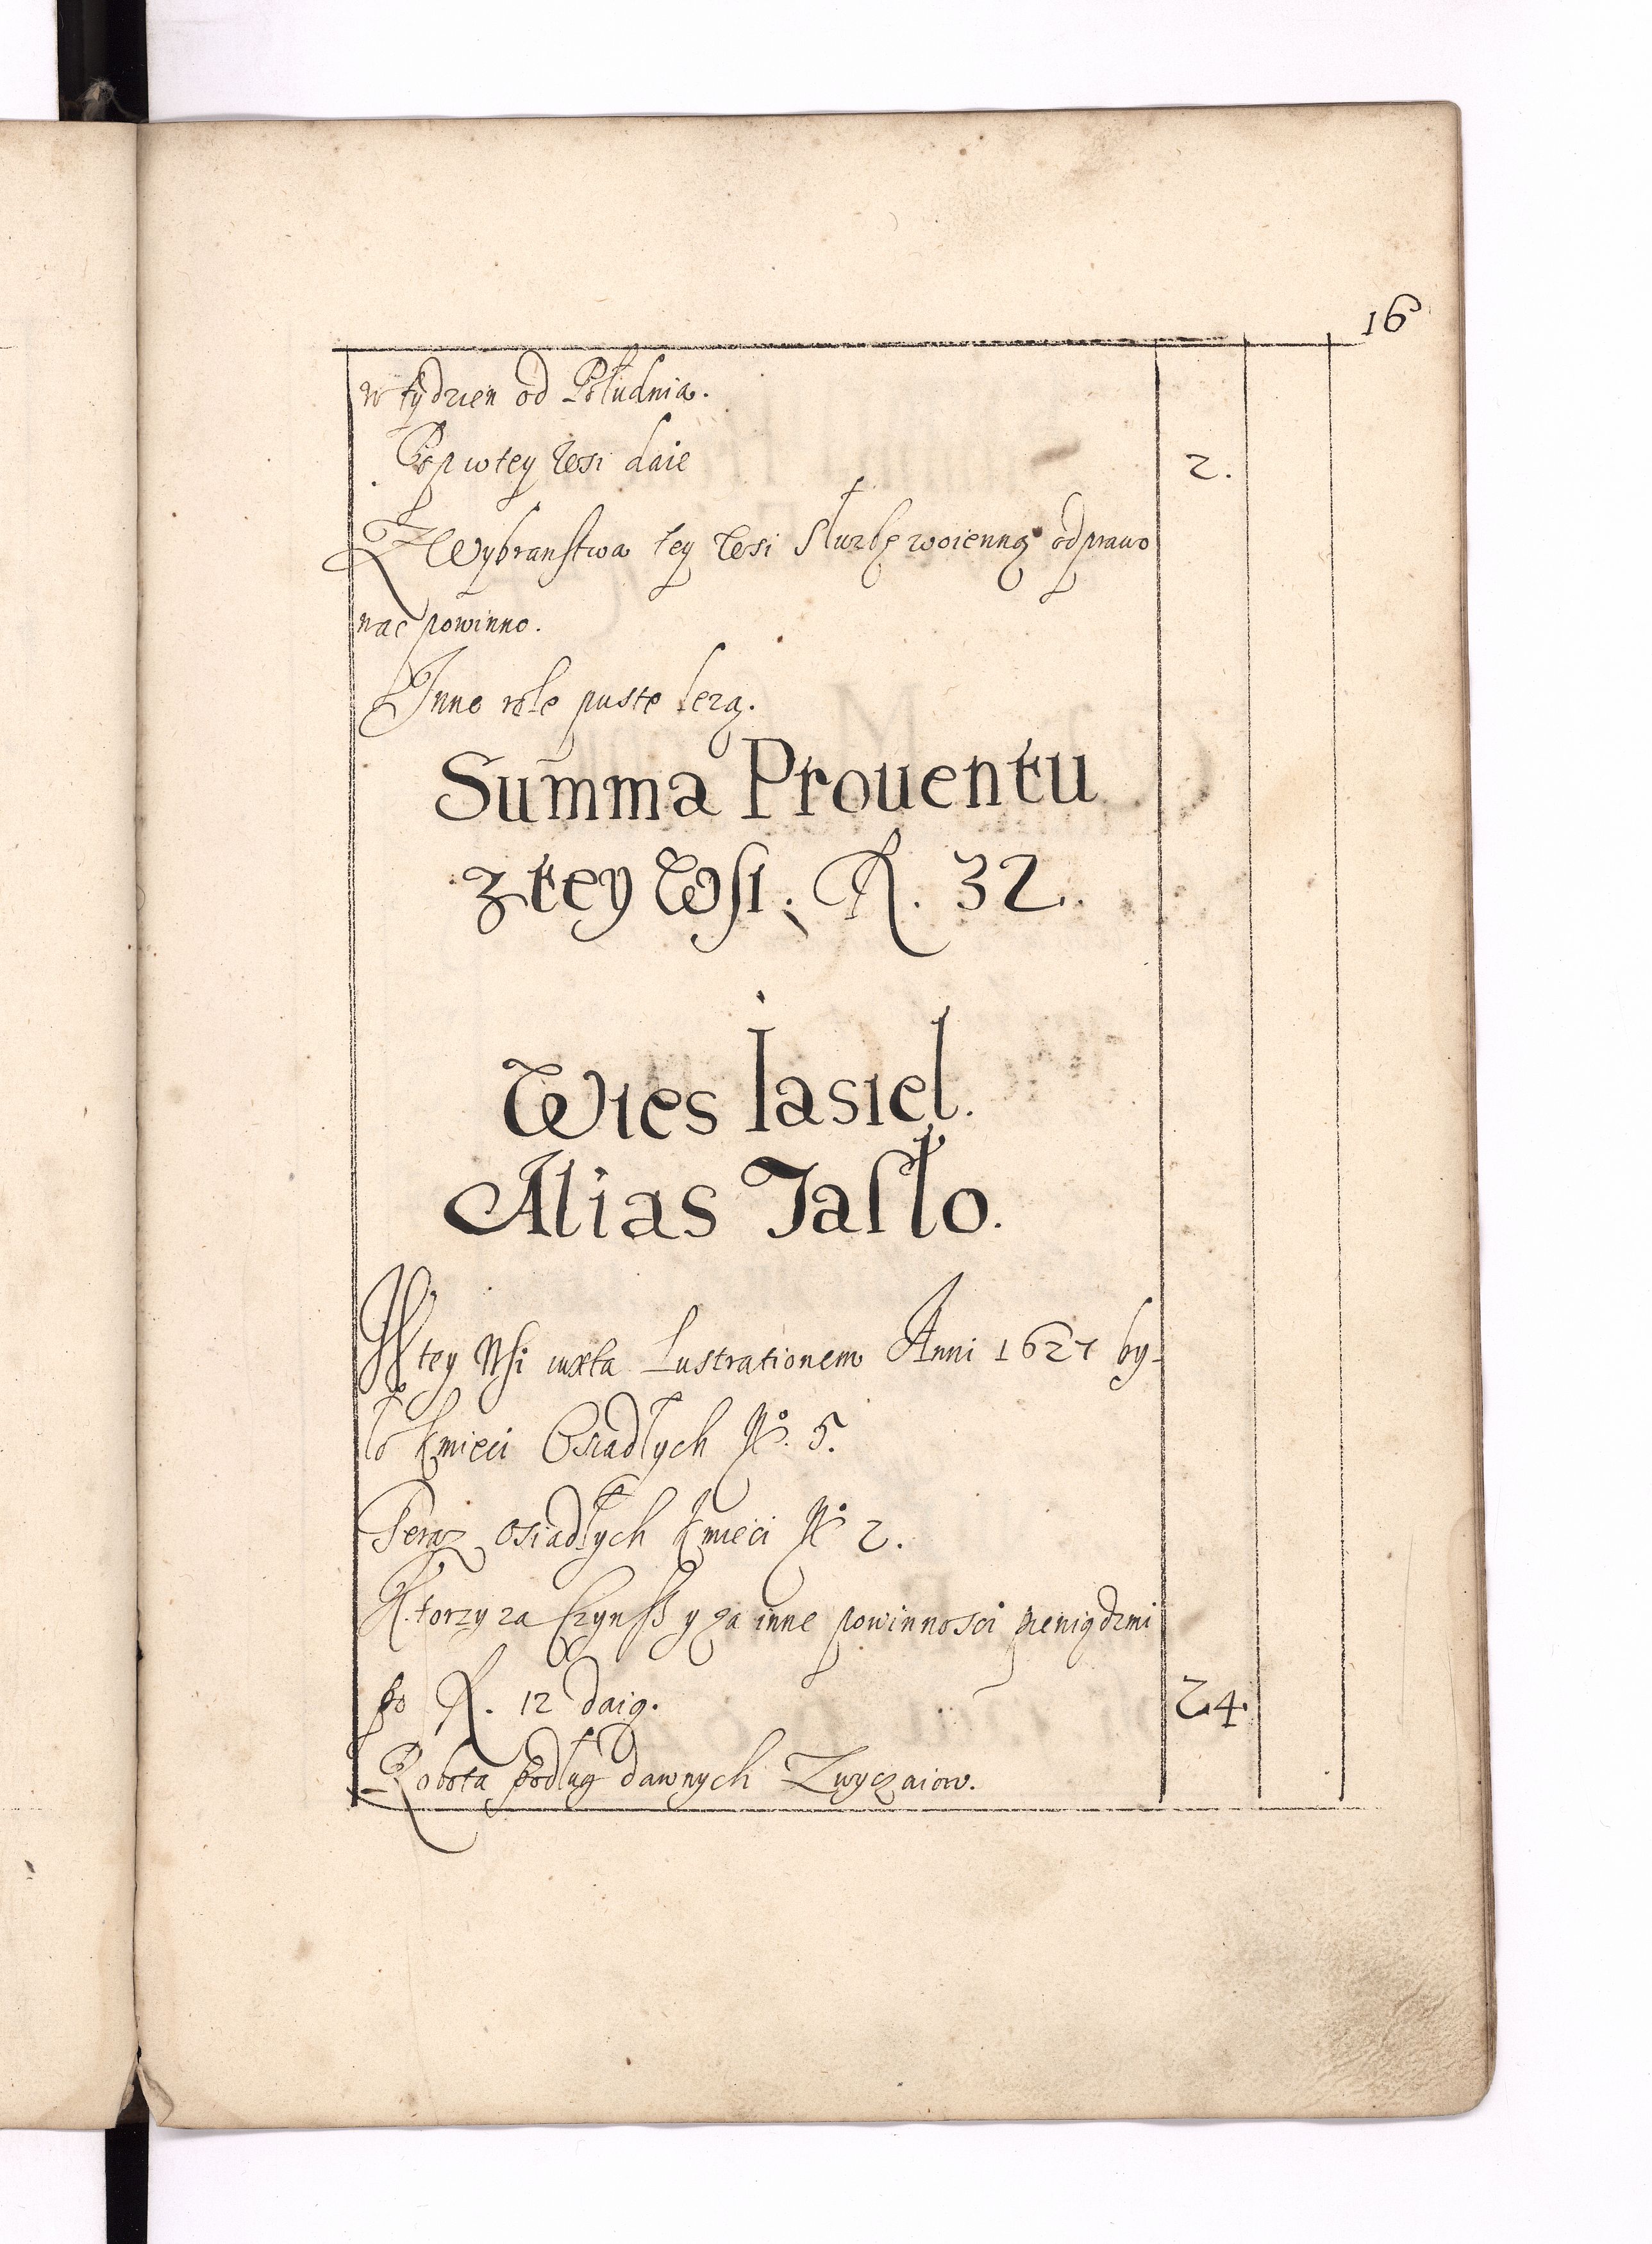 16
w tydzien od Południa.
Pop w tey Wsi daie 2.
Z Wybranstwa tey Wsi służbę woienną odprawo
nac powinno.
Inne role puste leżą.
Summa Prouentu
z tey Wsi. R. 32.
Wies Iasiel.
Alias Jasło.
W tey Wsi iuxta Lustrationem Anni 1627 by-
ło kmieci Osiadłych No. 5.
Teraz osiadłych kmieci No 2.
Ktorzy za Czynsz y za inne powinnosci pieniądzmi
po R. 12 daią. 24.
Robota podług dawnych Zwyczaiow.